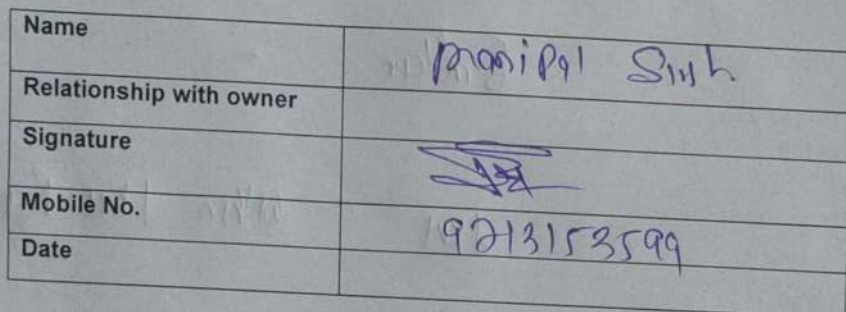 Name manipal Sinh
Relationship with owner
Signature
Mobile No. 9213153599
Date